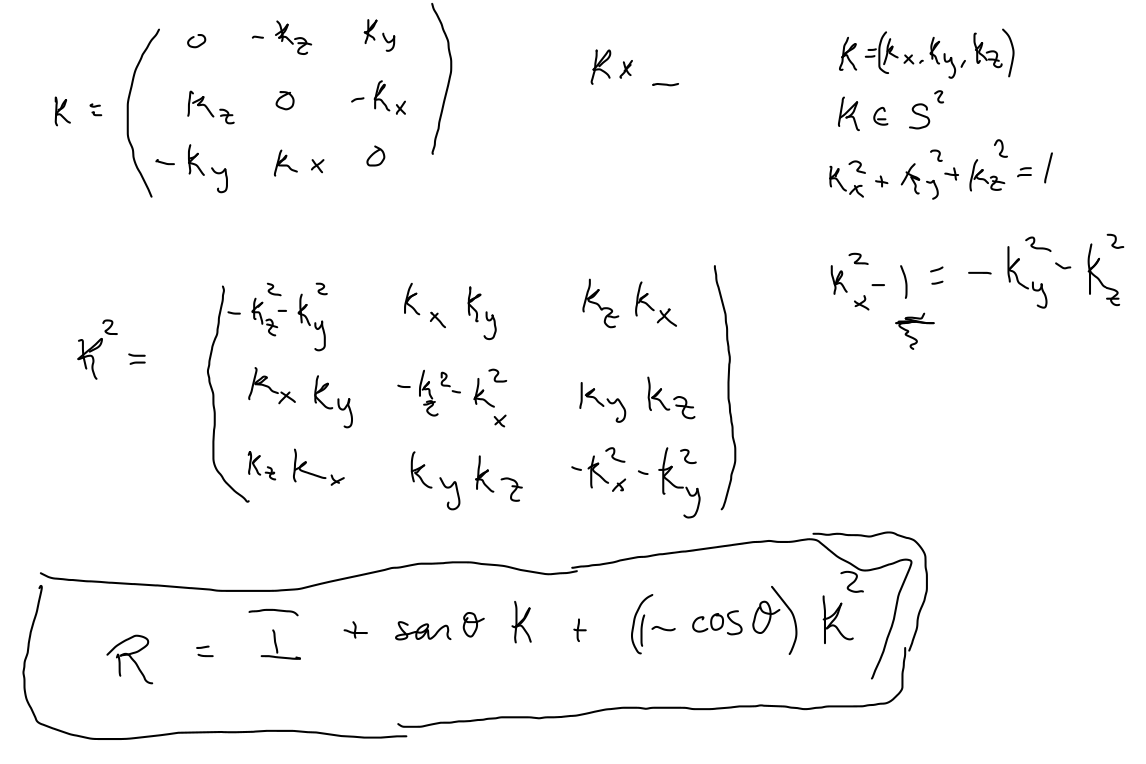 K = ( 0 -k_z k_y
k_z 0 -k_x
-k_y k_x 0 )
k × _
K=(k_x, k_y, k_z)
K ∈ S²
k_x² + k_y² + k_z² = 1
k_x² - 1 = -k_y² - k_z²
K² = ( -k_z² - k_y² k_x k_y k_z k_x
k_x k_y -k_z² - k_x² k_y k_z
k_z k_x k_y k_z -k_x² - k_y² )
R = I + sen θ K + (1 - cos θ) K²